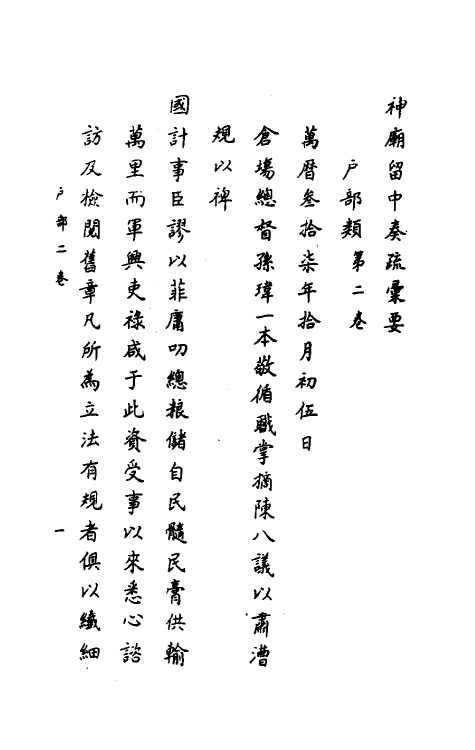 神廟留中奏疏彙要
戶部類第二卷
萬曆叁拾柒年拾月初伍日
倉場總督孫瑋一本敬循職掌摘陳八議以肅漕
規以裨
國計事臣謬以菲庸叨總粮儲自民髓民膏供輸
萬里而軍興吏祿咸于此資受事以來悉心諮
訪及檢閱舊章凡所為立法有規者俱以纖細
戶部二卷
一